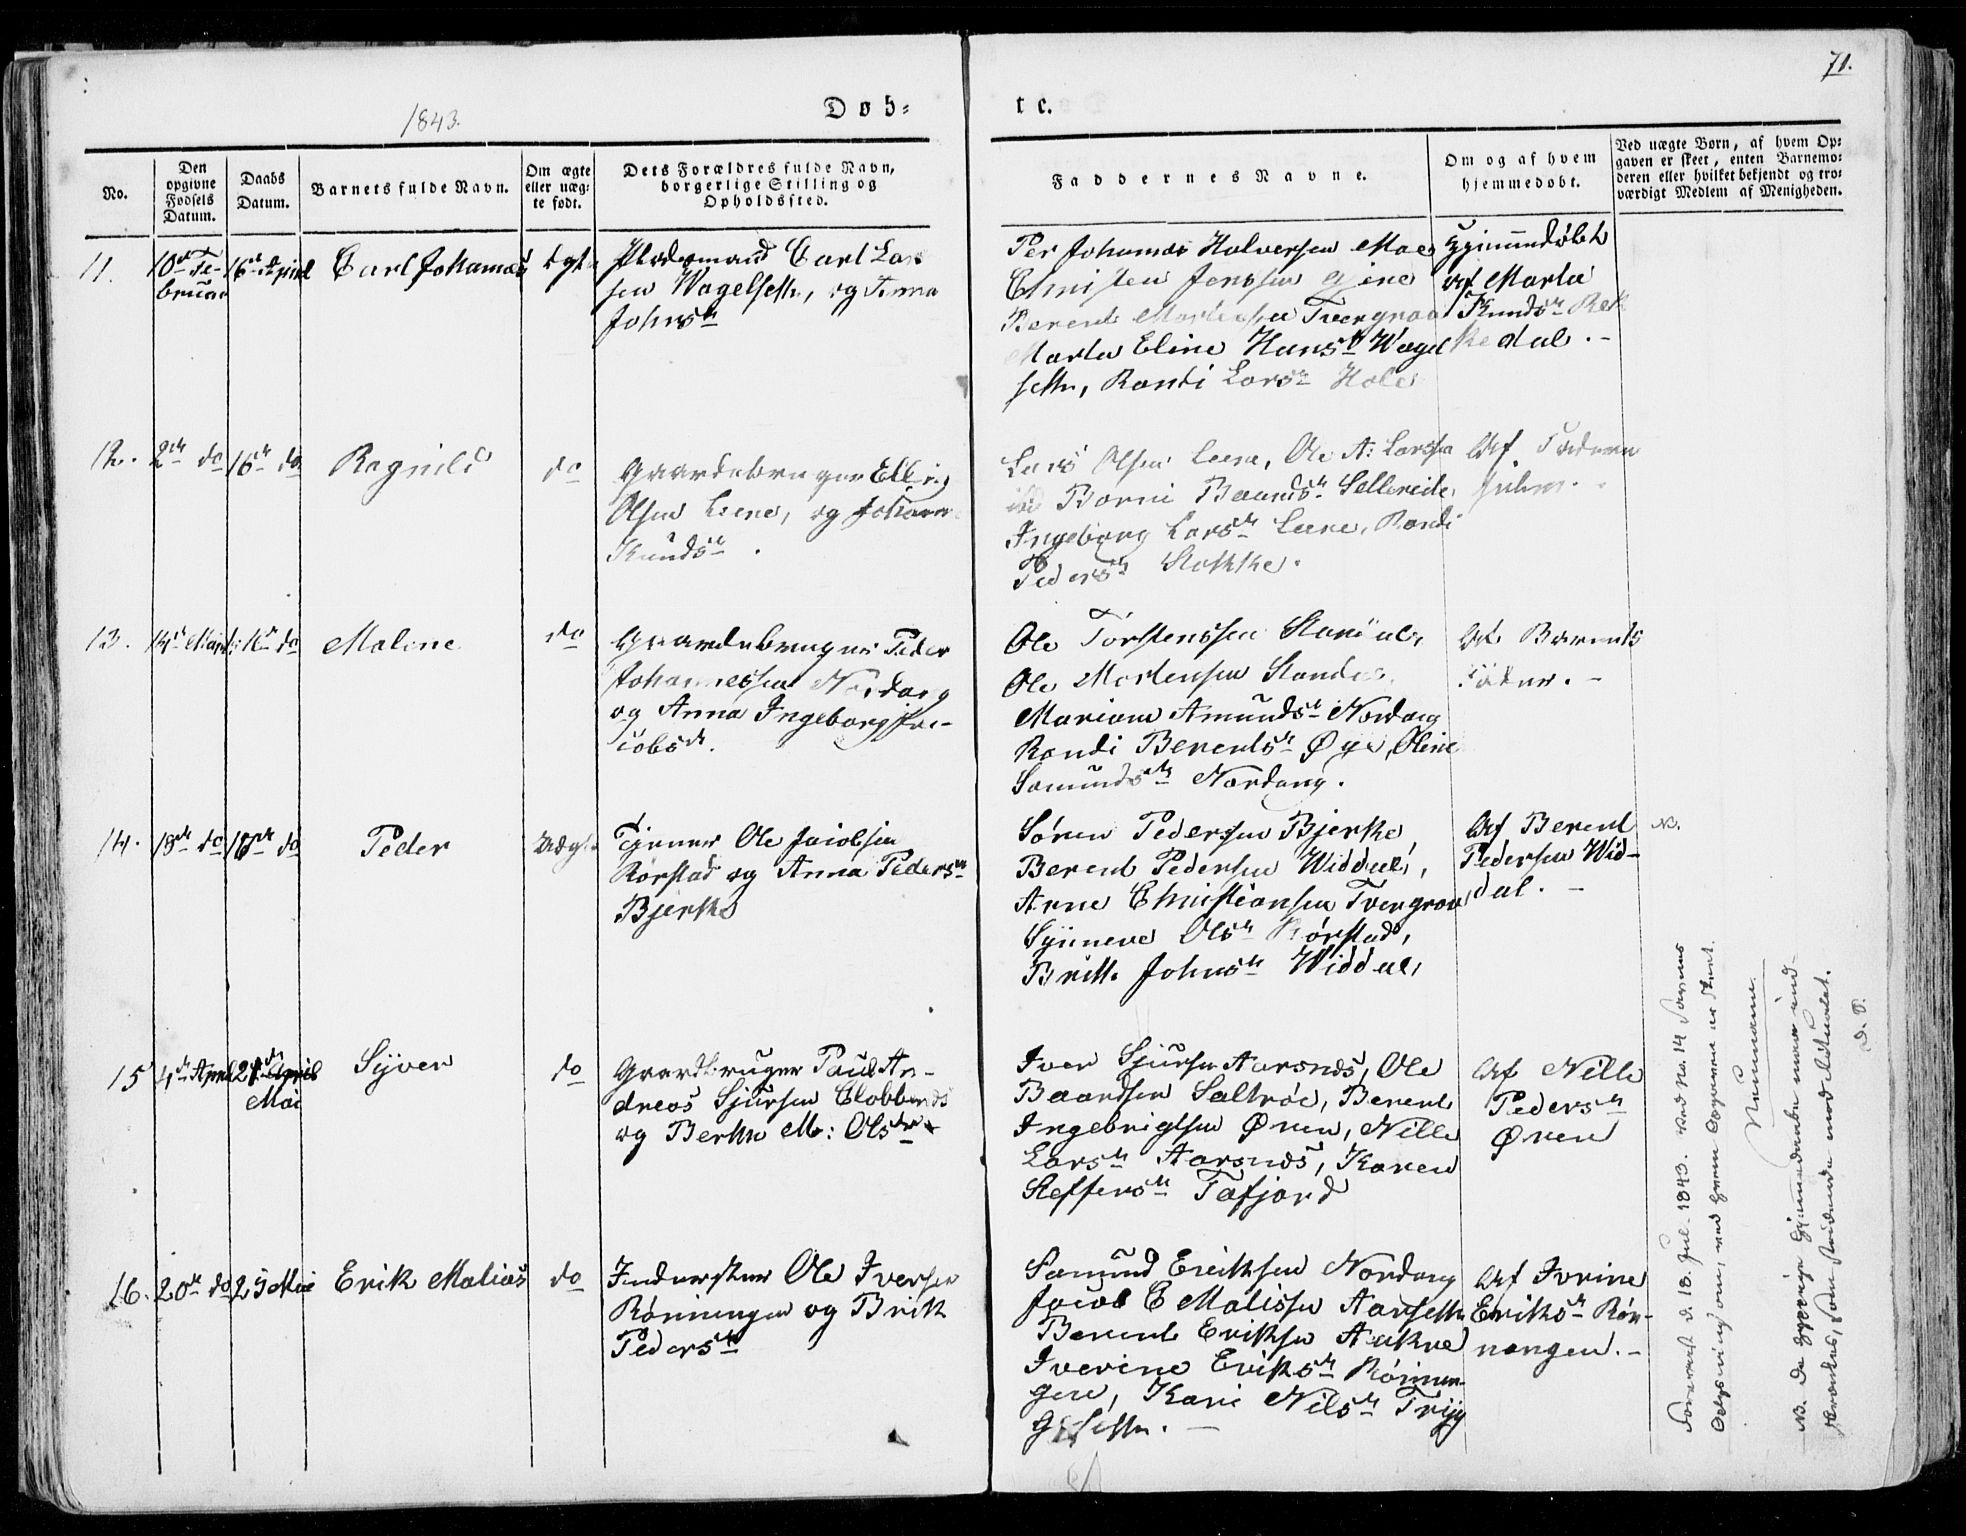 71.
1843.
Døb-
te.
No.
Den opgivne Fødsels Datum.
Daabs Datum.
Barnets fulde Navn.
Om ægte eller uæg-te født.
Dets Forældres fulde Navn, borgerlige Stilling og Opholdssted.
Faddernes Navne.
Om og af hvem hjemmedøbt.
Ved uægte Børn, af hvem Op-gaven er skeet, enten Barnemo-deren eller hvilket bekjendt og tro-værdigt Medlem af Menigheden.
11.
10de Fe-
bruar
16de April
Carl Johannes
Ægte
Pladsmand Carl Lar
sen Wagelsetn, og Anna
Johnsdr
Per Johannes Halvorsen Moe
Christen Jenssen
Berent Martinsen Tvergrov
Marta Eline Hansdr Wagel
setn, Randi Larsdr Hole
Hjemmedøbt
af Marta
Knudsdr Rek
kedal. -
12.
2de do
16de do
Ragnild
do
Gaardebruger Elling
Olsen Leene, og Johann
Knudsdr.
Lars Olsen Leene, Ole A: Larssen
ibd Barni Baardsdr Sellereite
Ingeborg Larsdr Leene, Randi
Pedersdr Stokke.
Af Faderen
selv.
13.
14de Marts
16de do
Malene
do
Gaardebruger Peder
Johannessen Nordang
og Anna Ingeborg Ja-
cobsdr.
Ole Torstenssen Standal,
Ole Mortensen Standal,
Mariane Amundsdr Nordang
Randi Berentsdr Øye, Oline
Samundsdr Nordang.
Af Barnets
Fader. -
14.
18de do
16de do
Peder
Uægte
Tjener Ole Jacobsen
Rørstad og Anna Pedersdr
Bjerke
Søren Pedersen Bjerke,
Berent Pedersen Widdal,
Arne Christiansen Tvergrov
Synneve Olsdr Rørstad,
Britte Johnsdr Widdal,
Af Berent
Pedersen Wid-
dal. -
N.
15
4de April
21de April
Mai
Syver
do
Gaardbruger Paul An-
dreas Sjursen Clobbenes
og Berthe M: Olsdr
Iver Sjursen Aarsnes, Ole
Baardsen Saltrøe, Berent
Ingebrigtsen Øren, Nille
Larsdr Aarsnes, Karen
Steffensdr Tafjord
Af Nille
Pedersdr
Øren
16.
20de do
25 Mai
Erik Malias
do
Inderster Ole Iversen
Rønningen og Brite
Pedersdr
Samund Eriksen Nordang
Jacob E Malissen Aarsetn
Berent Eriksen Aakre
Iverine Eriksdr Rønnin-
gen, Kari Nilsdr Tryg
gesetn. -
Af Ivrine
Eriksdr Røn-
nengen. -
d. 18. Jul. 1843. Ved No. 14 savnes
Oplysning om, ved hvem Opgaven er skeet.
Neumann.
N. De øvrige Hjemmedøbte maae ind-
føres, som stridende mod Ritualet.
d. S.